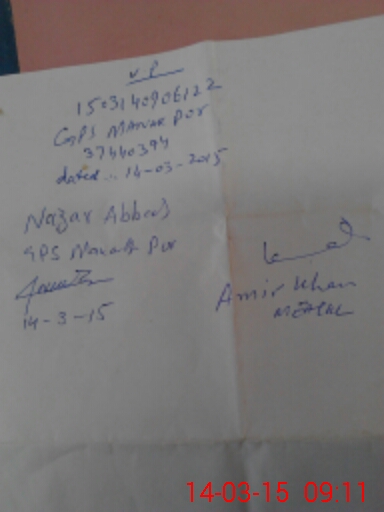 V P
1503140906122
GPS MANAK PUR
37440394
dated.. 14-03-2015
Nazar Abbas
GPS Manak Pur
14-3-15
Amir Khan
14-03-15 09:11